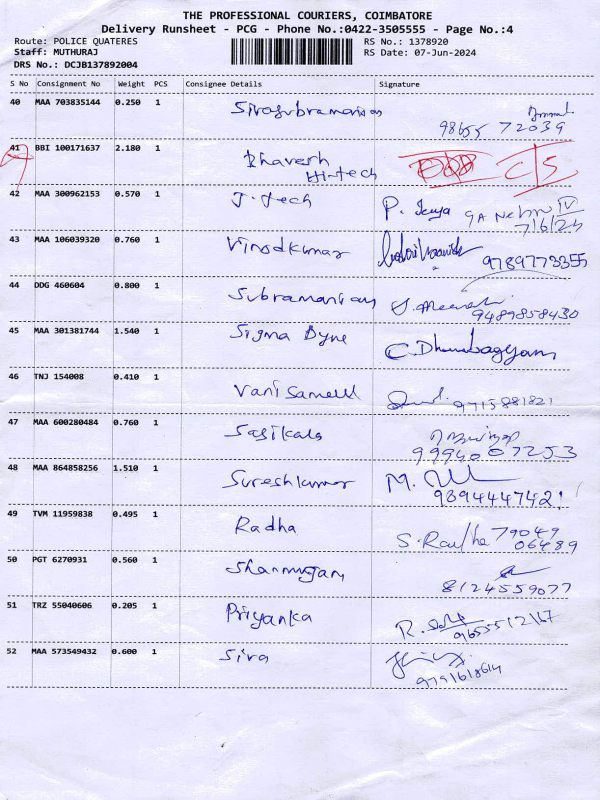 THE PROFESSIONAL COURIERS, COIMBATORE
Delivery Runsheet - PCG - Phone No.:0422-3505555 - Page No.:4
Route: POLICE QUATERES
RS No.: 1378920
Staff: MUTHURAJ
RS Date: 07-Jun-2024
DRS No.: DCJB137892004
S No Consignment No Weight PCS Consignee Details Signature
40 MAA 703835144 0.250 1 Sivasubramanian
98655 72039
41 BBI 100171637 2.180 1 Bhavesh
Hi-tech C/S
42 MAA 300962153 0.570 1 J. tech P.
7/6/24
43 MAA 106039320 0.760 1 Vinodkumar
9789773355
44 DDG 460604 0.800 1 Subramaniam
9489858430
45 MAA 301381744 1.540 1 Sigma Byne C. Dhanabagyam
46 TNJ 154008 0.410 1 Vani
9715881821
47 MAA 600280484 0.760 1 Sasikala
9994007253
48 MAA 864858256 1.510 1 Sureshkumar M.
9894447421
49 TVM 11959838 0.495 1 Radha S. Radha 79049
06489
50 PGT 6270931 0.560 1 Shanmugam
8124559077
51 TRZ 55040606 0.205 1 Priyanka R.
9655512167
52 MAA 573549432 0.600 1 Siva
9791618614